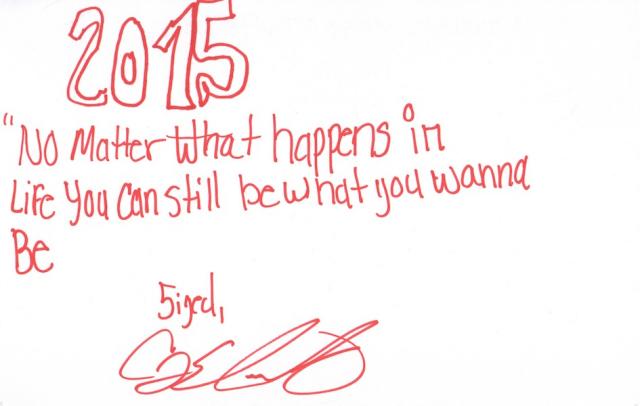 2015
"No Matter What happens in
Life You Can still be what you wanna
Be
Siged,